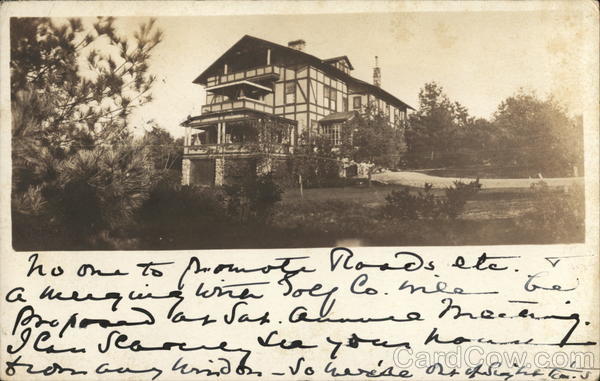 No one to promote Roads etc. &
a merging with Golf Co. will be
proposed at Sat. Annual Meeting.
I can scarcely see your house
from any window - so we're out of sight
CardCow.com